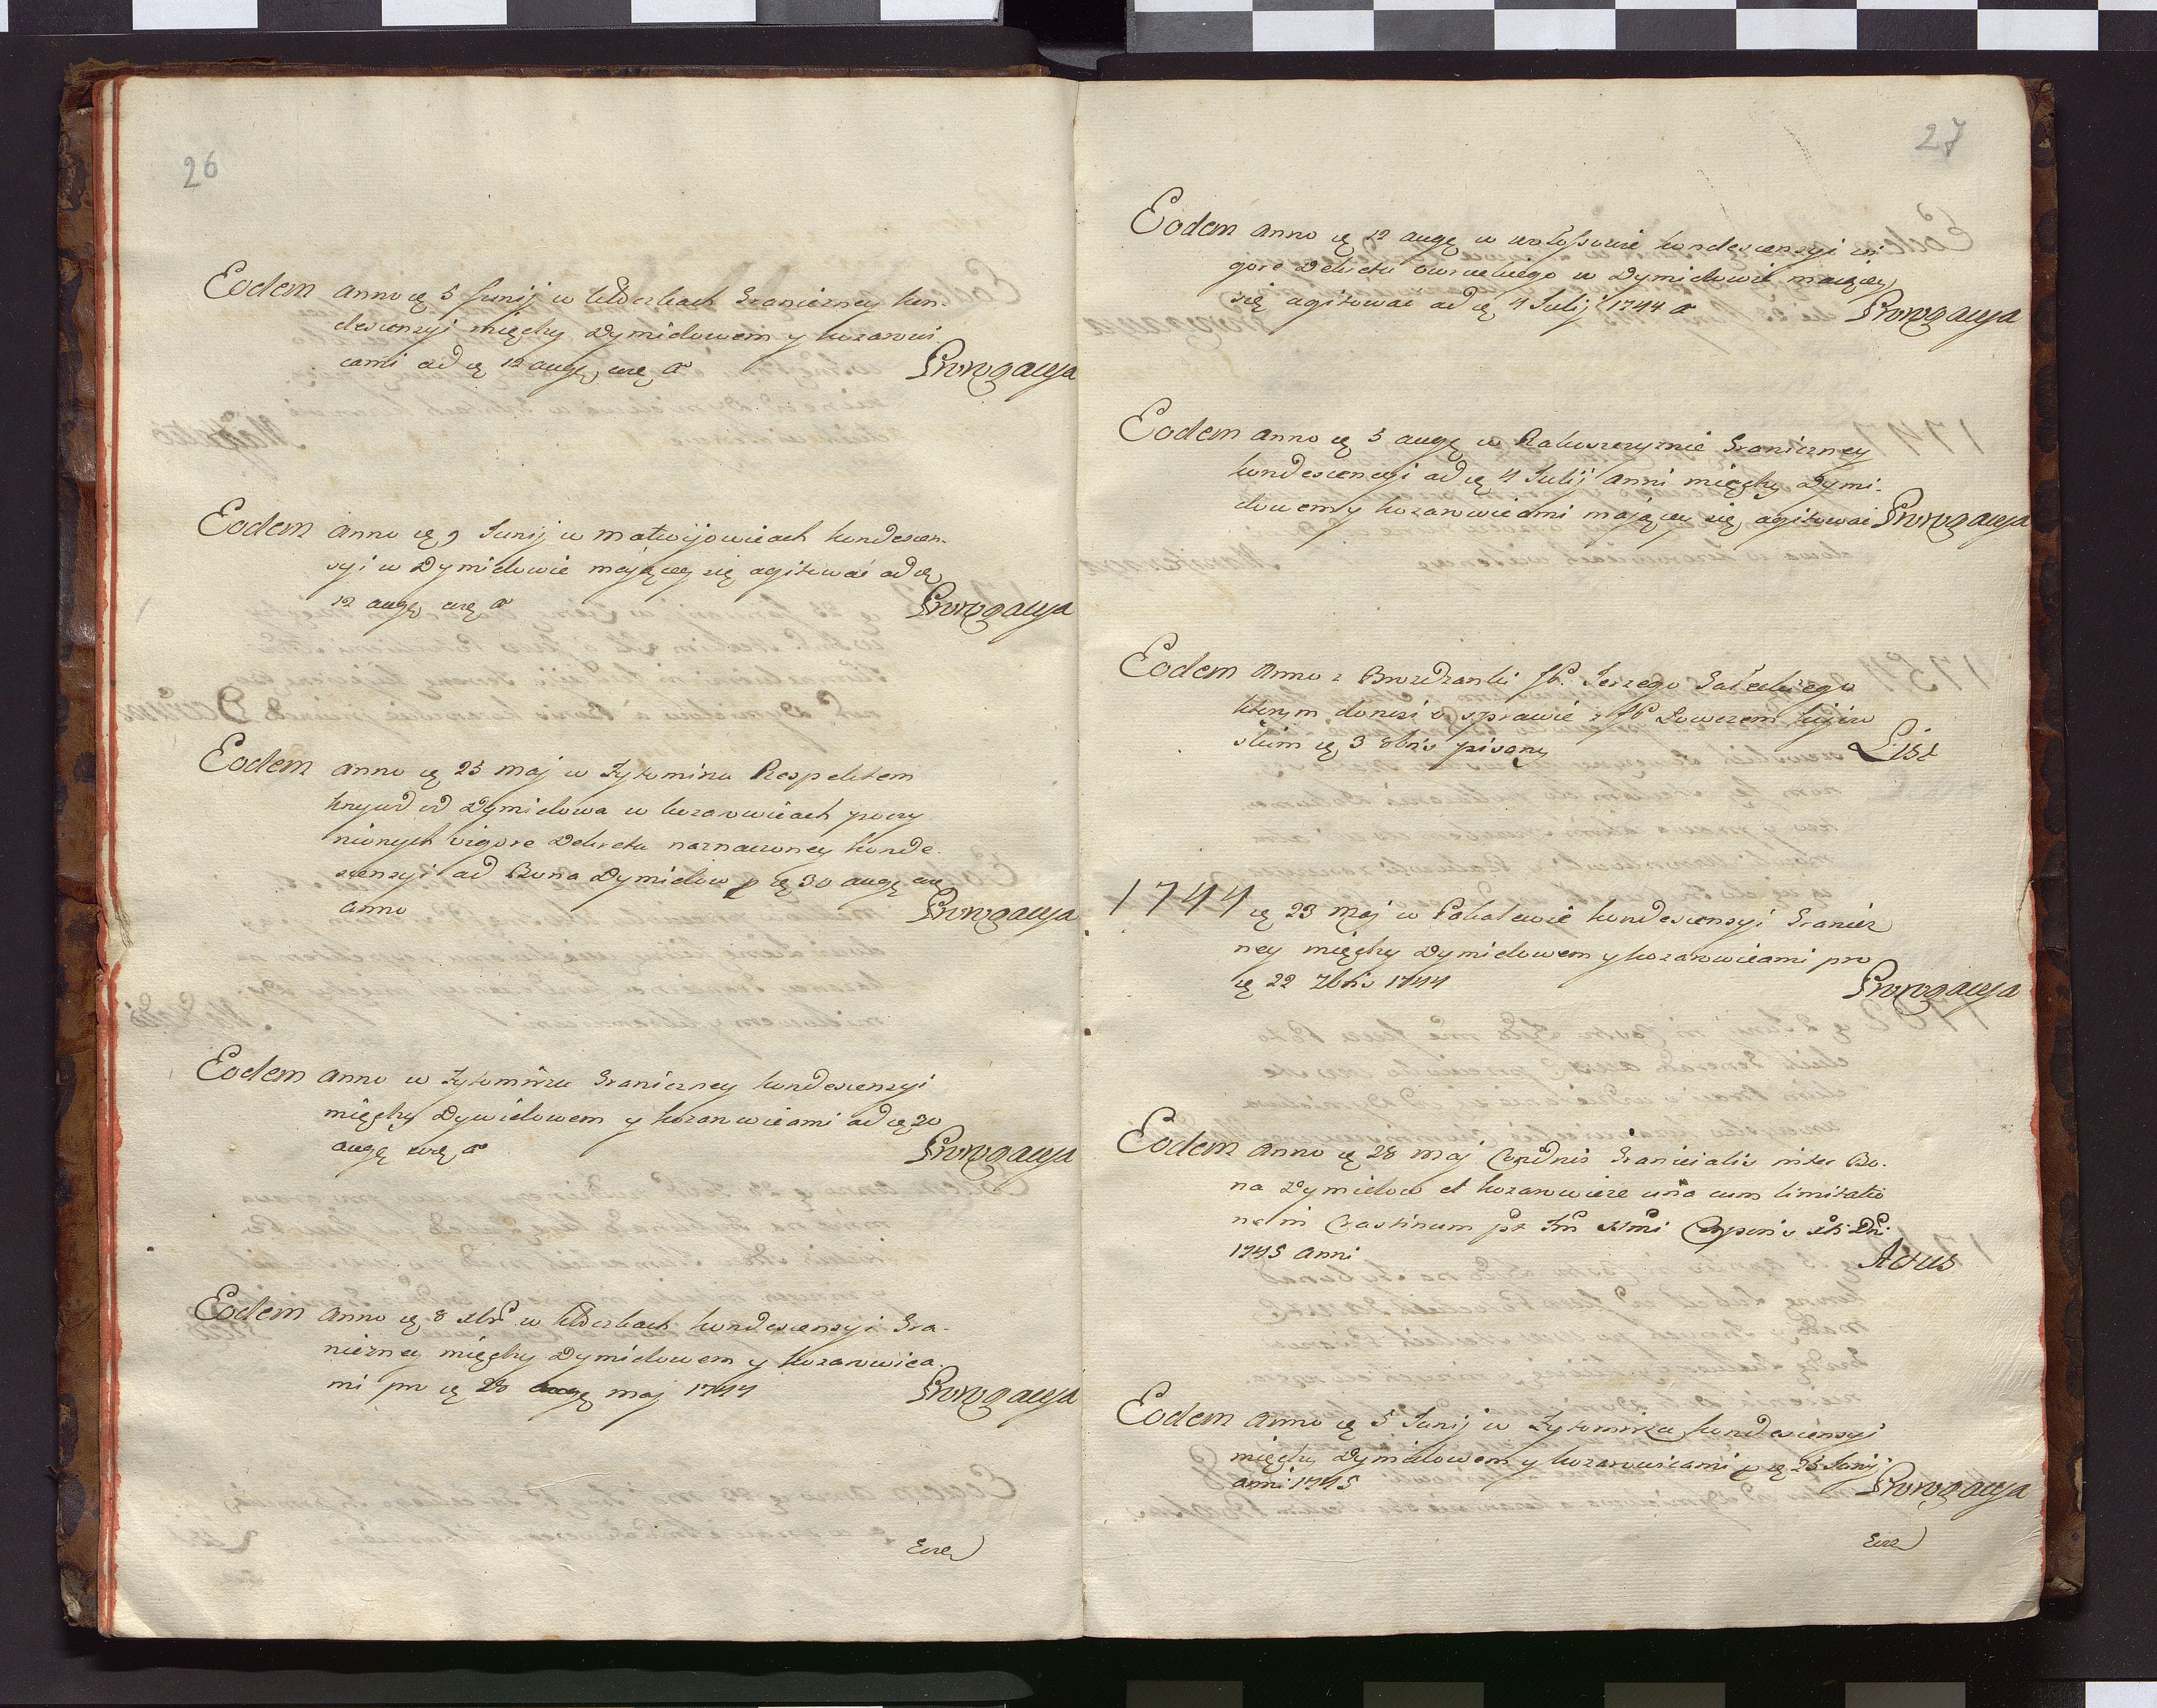 26
Eodem anno ię 5 Junij w Uszczkach Graniczney kon-
descensyi między Dymidowem y kozarowi-
cami ad ię 12 augę, 
Prorogacya
Eodem anno ię 9 Junij w Matwijowicach kondescen-
syi w Dymidowie mającey się agitować ad ię
12 augę
Prorogacya
Eodem anno ię 25 maj w Żytomirzu Respektem
krzywd od Dymidowa w kozarowicach poczy
nionych vigore Dekretu naznaczoney konde-
scensyi ad Bona Dymidow p ię 30 augę
anno
Prorogacya
Eodem anno w Żytomirzu Graniczney kondescensyi
między Dywidowem y kozarowicami ad ię 30
augę
Prorogacya
Eodem anno ię 8 w kondescensyi Gra-
niczney między Dymidowem y kozarowica-
mi pro ię 28 maj 1744
Prorogacya
27
Eodem anno ię 12 augę w wołossowie kondescensyi vi
gore Dekretu owruckiego w Dymidowie maiącey
się agitować ad ię 4 Julij 1744
Prorogacya
Eodem anno ię 5 augę w Rakowszczyznie Graniczney
kondescencyi ad ię 4 Julij anni między Dymi-
dowem y kozarowicami mającey się agitować Prorogacya
Eodem anno z Brozdzanki Jerzego Gałeckiego
ktorym donosi o sprawie z Łowczem kijow
skim ię 3 8bris pisany
List
1744 ię 23 maj w Pokalewie kondescensyi Granicz
ney między Dymidowem y kozarowicami pro
ię 22 7bris 1744
Prorogacya
Eodem anno ię 28 maj Condnis Granicialis inter Bo-
na Dymidow et kozarowicze una cum limitatio
ne in Crastinum Corporis
1745 anni
Actus
Eodem anno ię 5 Junij w Żytomirzu kondescensyi
między Dymidowem y kozarowicami p ię 25 Junij
anni 1745
Prorogacya